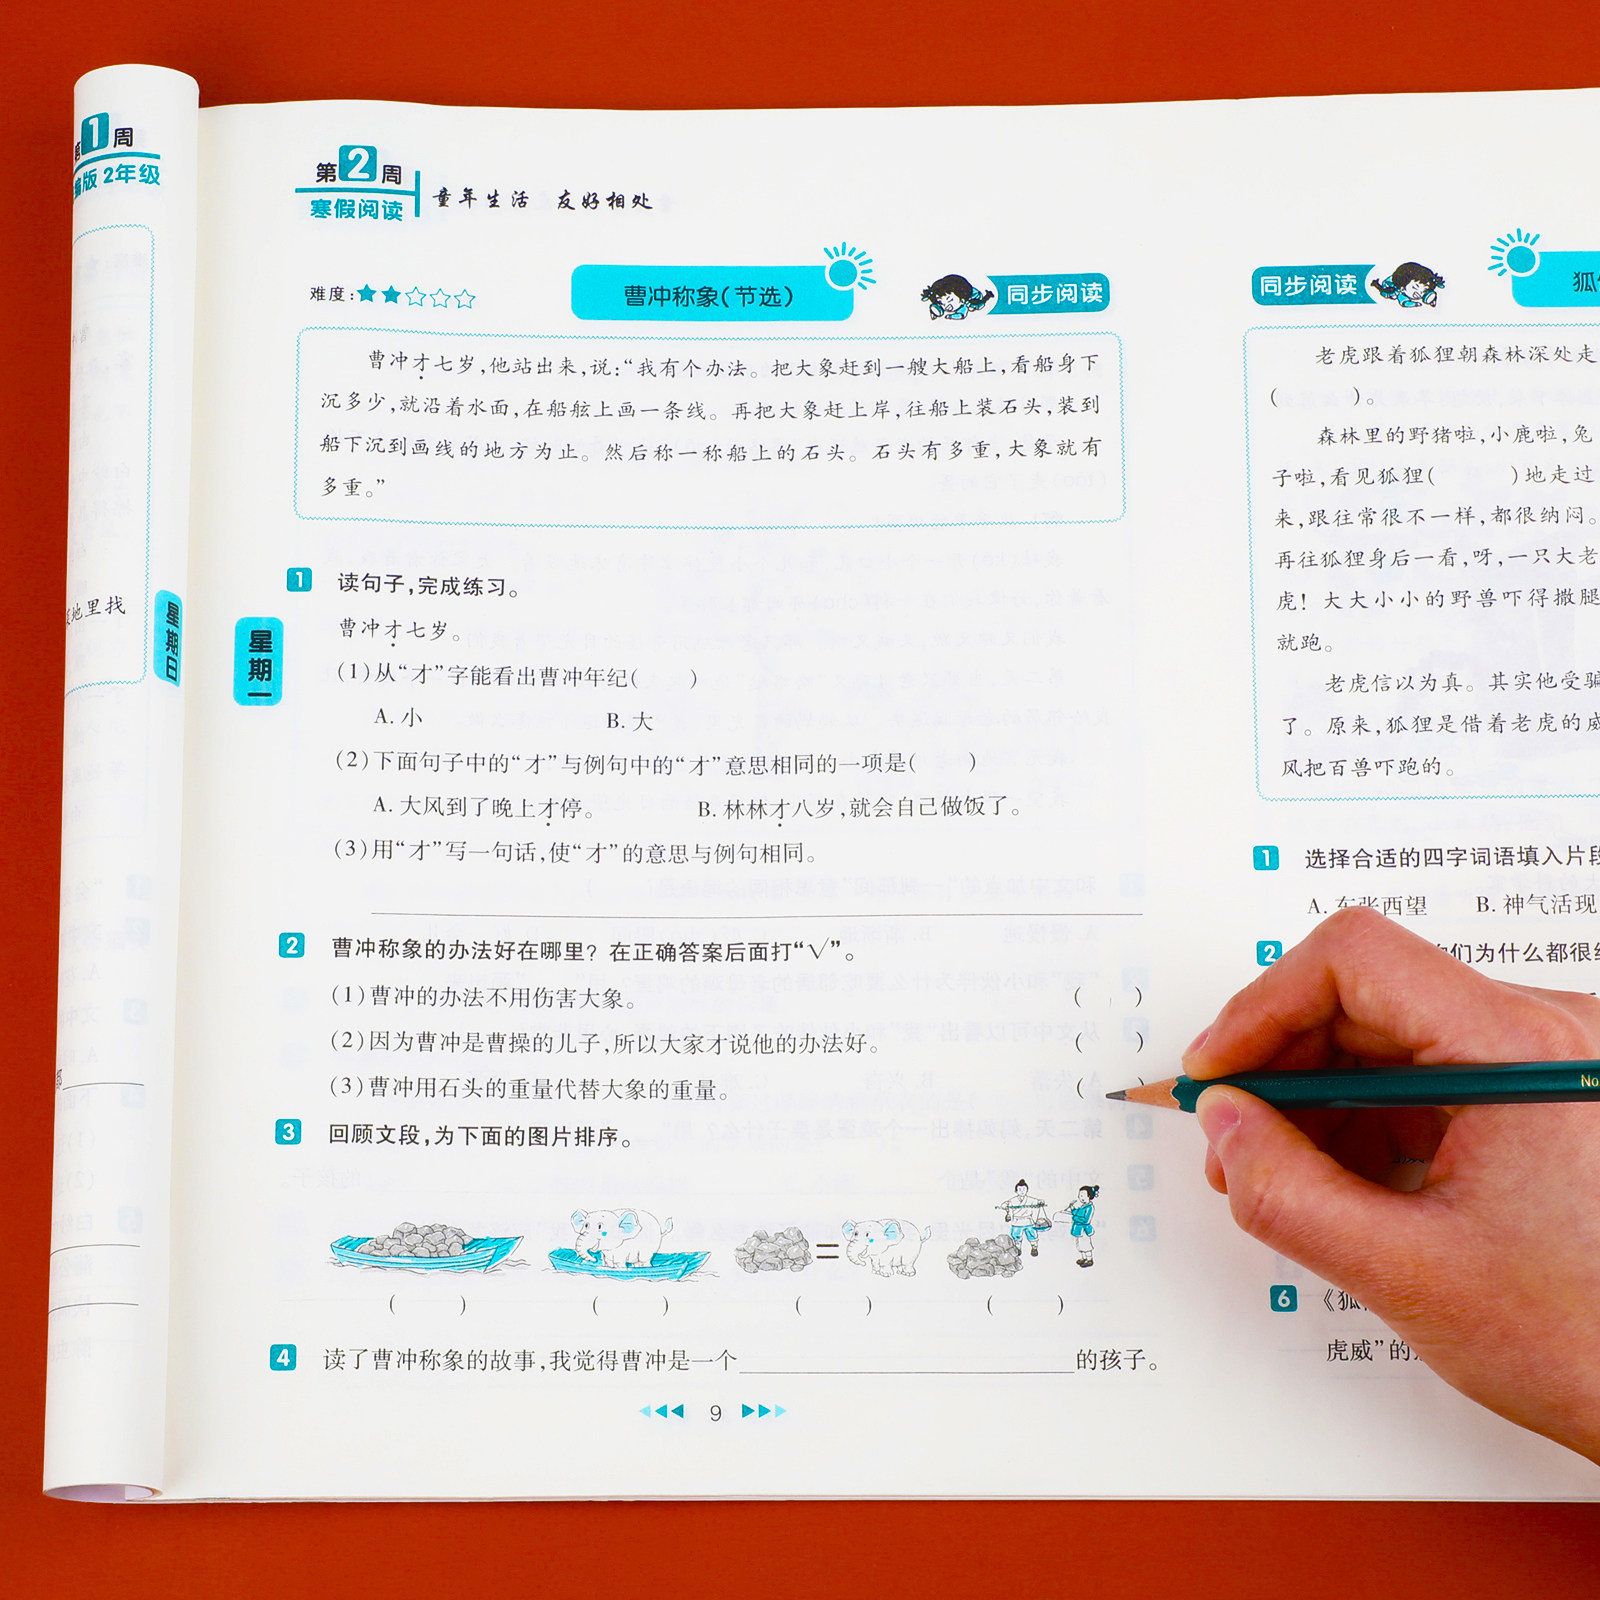 第1周
编版 2年级
地里找
星期日
第2周
寒假阅读
童年生活 友好相处
难度:★★☆☆☆
曹冲称象(节选)
同步阅读
曹冲才七岁,他站出来,说:“我有个办法。把大象赶到一艘大船上,看船身下
沉多少,就沿着水面,在船舷上画一条线。再把大象赶上岸,往船上装石头,装到
船下沉到画线的地方为止。然后称一称船上的石头。石头有多重,大象就有
多重。”
星期一
1 读句子,完成练习。
曹冲才七岁。
(1)从“才”字能看出曹冲年纪( )
A. 小 B. 大
(2)下面句子中的“才”与例句中的“才”意思相同的一项是( )
A. 大风到了晚上才停。 B. 林林才八岁,就会自己做饭了。
(3)用“才”写一句话,使“才”的意思与例句相同。
2 曹冲称象的办法好在哪里?在正确答案后面打“√”。
(1)曹冲的办法不用伤害大象。 ( )
(2)因为曹冲是曹操的儿子,所以大家才说他的办法好。 ( )
(3)曹冲用石头的重量代替大象的重量。 ( )
3 回顾文段,为下面的图片排序。
=
( ) ( ) ( ) ( )
4 读了曹冲称象的故事,我觉得曹冲是一个 的孩子。
9
同步阅读
狐
老虎跟着狐狸朝森林深处走
( )。
森林里的野猪啦,小鹿啦,兔
子啦,看见狐狸( )地走过
来,跟往常很不一样,都很纳闷。
再往狐狸身后一看,呀,一只大老
虎!大大小小的野兽吓得撒腿
就跑。
老虎信以为真。其实他受骗
了。原来,狐狸是借着老虎的威
风把百兽吓跑的。
1 选择合适的四字词语填入片段
A. 东张西望 B. 神气活现
2 们为什么都很
6 《狐
虎威”的
No